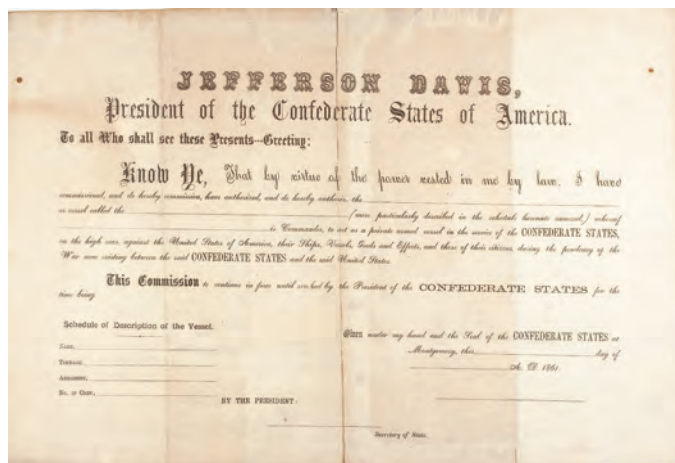 JEFFERSON DAVIS,
President of the Confederate States of America.
To all Who shall see these Presents—Greeting:
Know Ye, That by virtue of the power vested in me by law, I have
commissioned, and do hereby commission, have authorized, and do hereby authorize, the
or vessel called the (more particularly described in the schedule hereunto annexed,) whereof
is Commander, to act as a private armed vessel in the service of the CONFEDERATE STATES,
on the high seas, against the United States of America, their Ships, Vessels, Goods and Effects, and those of their citizens, during the pendency of the
War now existing between the said CONFEDERATE STATES and the said United States.
This Commission to continue in force until revoked by the President of the CONFEDERATE STATES for the
time being.
Schedule of Description of the Vessel.
Given under my hand and the Seal of the CONFEDERATE STATES at
Montgomery, this day of
Name,
A. D. 1861.
Tonnage,
Armament,
No. of Crew,
BY THE PRESIDENT:
Secretary of State.